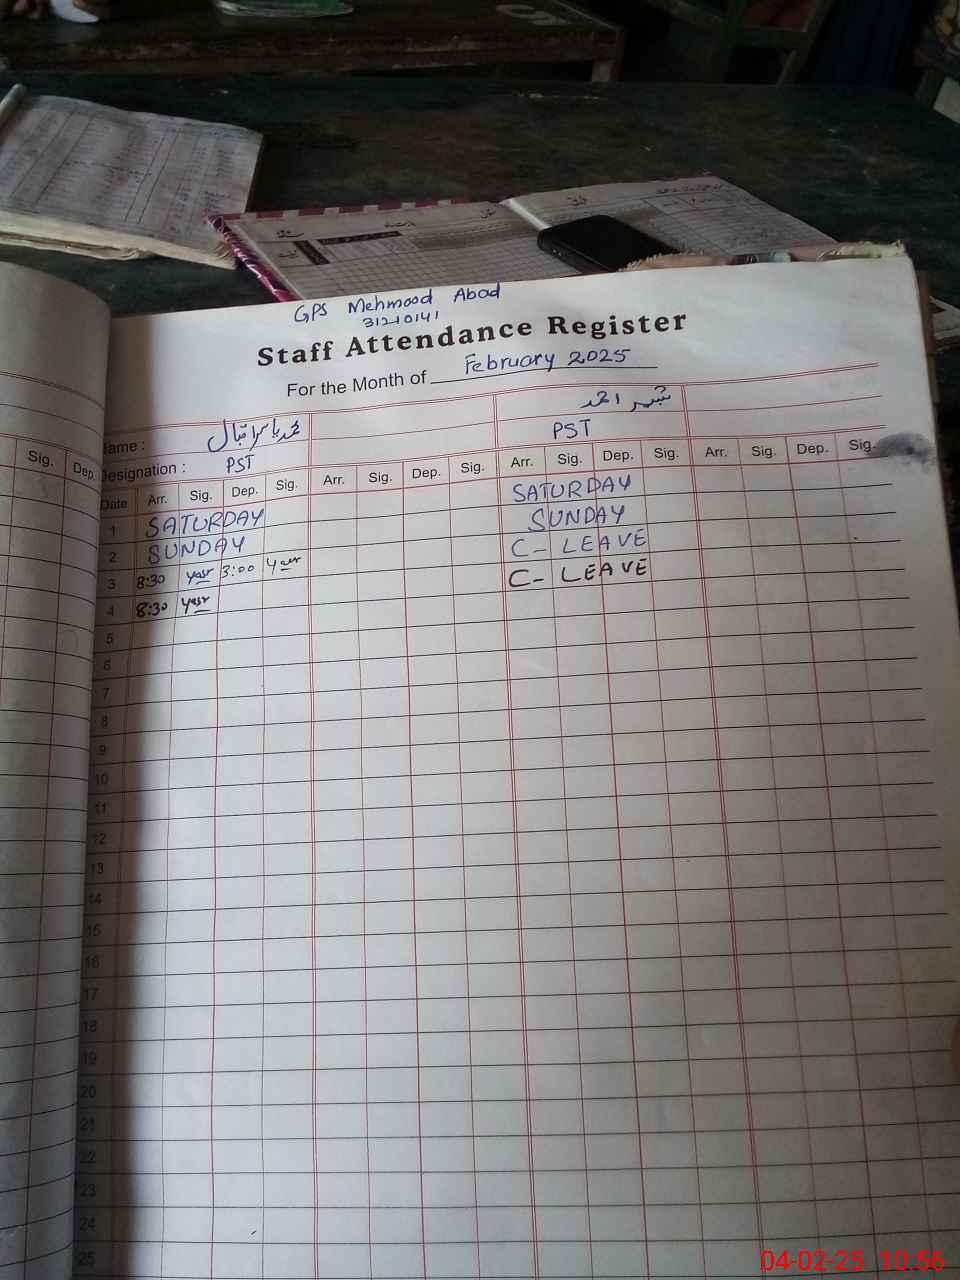 GPS Mehmood Abad
31210141
Staff Attendance Register
For the Month of February 2025
Name : محمد یاسر اقبال شبیر احمد
Designation : PST PST
Sig. Dep.
Date Arr. Sig. Dep. Sig. Arr. Sig. Dep. Sig. Arr. Sig. Dep. Sig. Arr. Sig. Dep. Sig.
1 SATURDAY SATURDAY
2 SUNDAY SUNDAY
3 8:30 yasr 3:00 yasr C- LEAVE
4 8:30 yasr C- LEAVE
5
6
7
8
9
10
11
12
13
14
15
16
17
18
19
20
21
22
23
24
25
04-02-25 10:56